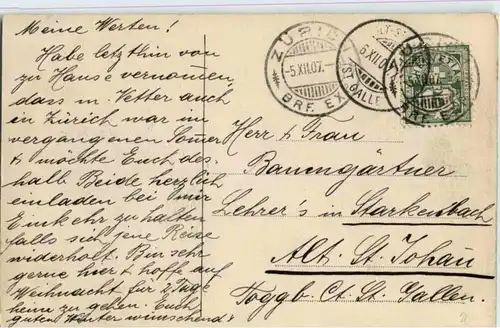 Meine Werten!
Habe letzthin von
zu Hause vernommen,
dass m. Vetter auch
in Zürich war im
vergangenen Somer
& möchte Euch des-
halb Beide herzlich
einladen bei mir
Einkehr zu halten
falls sich jene Reise
wiederholt. Bin sehr
gerne hier & hoffe auf
Weihnacht für 2 Tage
heim zu gehen. Euch
guten Winter wünschend
Herr & Frau
Baumgärtner
Lehrer's in Starkenbach
Alt. St. Johann
Toggb. Ct. St. Gallen.
ZÜRICH
-5.XII.07.-
BRF. EX.
ALT-ST.
6.XII.07
(ST. GALLEN)